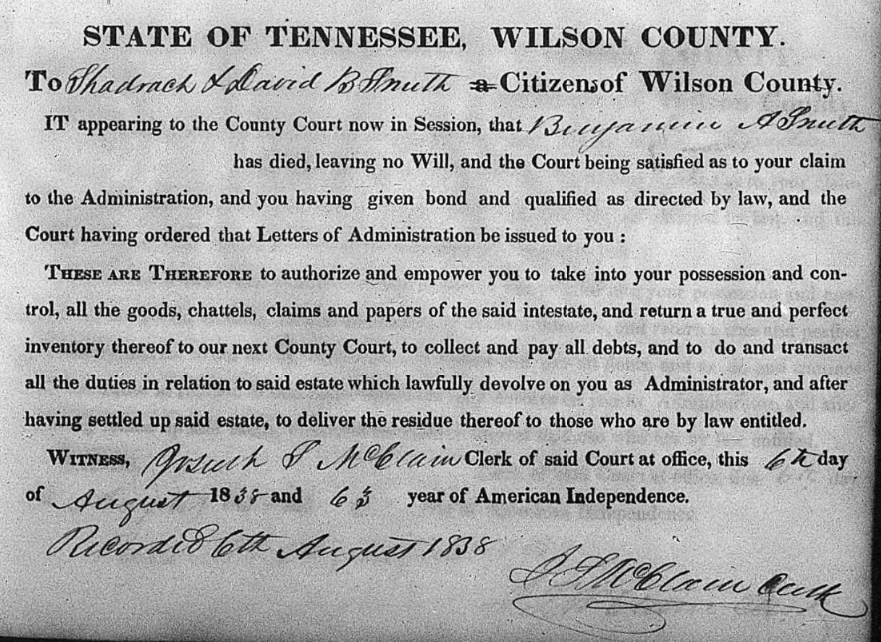 STATE OF TENNESSEE, WILSON COUNTY.
To Shadrach & David B Smith a Citizens of Wilson County.
IT appearing to the County Court now in Session, that Benjamin A Smith
has died, leaving no Will, and the Court being satisfied as to your claim
to the Administration, and you having given bond and qualified as directed by law, and the
Court having ordered that Letters of Administration be issued to you :
THESE ARE THEREFORE to authorize and empower you to take into your possession and con-
trol, all the goods, chattels, claims and papers of the said intestate, and return a true and perfect
inventory thereof to our next County Court, to collect and pay all debts, and to do and transact
all the duties in relation to said estate which lawfully devolve on you as Administrator, and after
having settled up said estate, to deliver the residue thereof to those who are by law entitled.
WITNESS, Josiah S McClain Clerk of said Court at office, this 6th day
of August 1838 and 63 year of American Independence.
Recorded 6th August 1838
J S McClain Clk